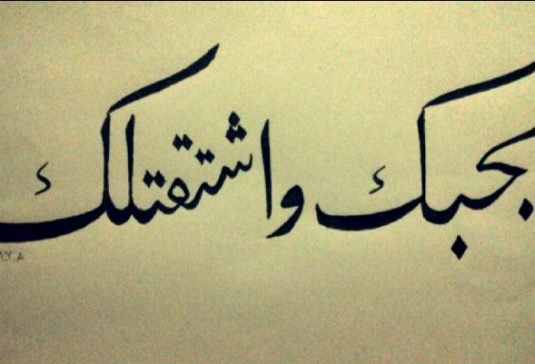 بحبك واشتقتلك